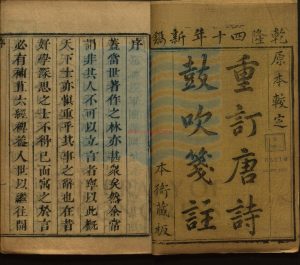 乾隆四十年新鐫
原本較定
重訂唐詩
鼓吹箋註
本衙藏板
序
蓋當世著作之林亦甚衆矣然余常
謂非其人不可以立言者專以此概
天下士亦惧重乎其事之辭也在昔
好學深思之士不得已而寓之於言
必有補五六經裨益人世以繼往開
序